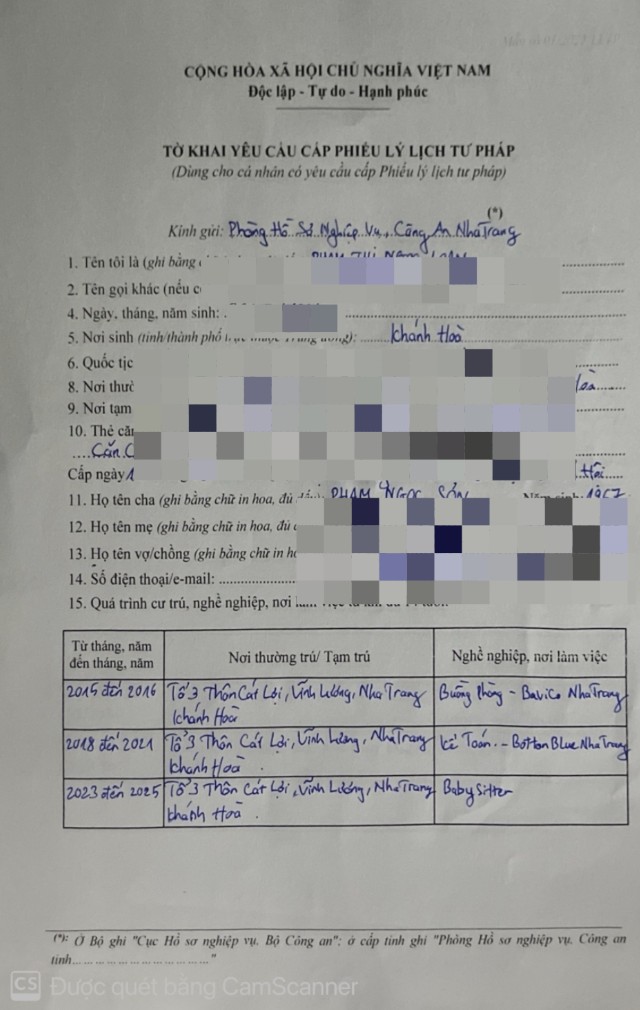 CỘNG HÒA XÃ HỘI CHỦ NGHĨA VIỆT NAM
Độc lập - Tự do - Hạnh phúc
TỜ KHAI YÊU CẦU CẤP PHIẾU LÝ LỊCH TƯ PHÁP
(Dùng cho cá nhân có yêu cầu cấp Phiếu lý lịch tư pháp)
(*)
Kính gửi: Phòng Hồ Sơ Nghiệp Vụ, Công An Nha Trang
1. Tên tôi là (ghi bằng
2. Tên gọi khác (nếu c
4. Ngày, tháng, năm sinh:
5. Nơi sinh (tỉnh/thành phố Khánh Hoà
6. Quốc tịc
8. Nơi thườ
9. Nơi tạm
10. Thẻ că
Căn C
Cấp ngày
11. Họ tên cha (ghi bằng chữ in hoa, đủ PHẠM NGỌC
12. Họ tên mẹ (ghi bằng chữ in hoa, đủ
13. Họ tên vợ/chồng (ghi bằng chữ in ho
14. Số điện thoại/e-mail:
15. Quá trình cư trú, nghề nghiệp, nơi
Từ tháng, năm đến tháng, năm Nơi thường trú/ Tạm trú Nghề nghiệp, nơi làm việc
2015 đến 2016 Tổ 3 Thôn Cát Lợi, Vĩnh Lương, Nha Trang Buồng Phòng - Bavico Nha Trang
Khánh Hoà
2018 đến 2021 Tổ 3 Thôn Cát Lợi, Vĩnh Lương, Nha Trang Kế Toán - Botton Blue Nha Trang
Khánh Hoà.
2023 đến 2025 Tổ 3 Thôn Cát Lợi, Vĩnh Lương, Nha Trang Baby Sitter
Khánh Hoà.
(*): Ở Bộ ghi "Cục Hồ sơ nghiệp vụ. Bộ Công an"; ở cấp tỉnh ghi "Phòng Hồ sơ nghiệp vụ. Công an
tỉnh.............................."
CS Được quét bằng CamScanner